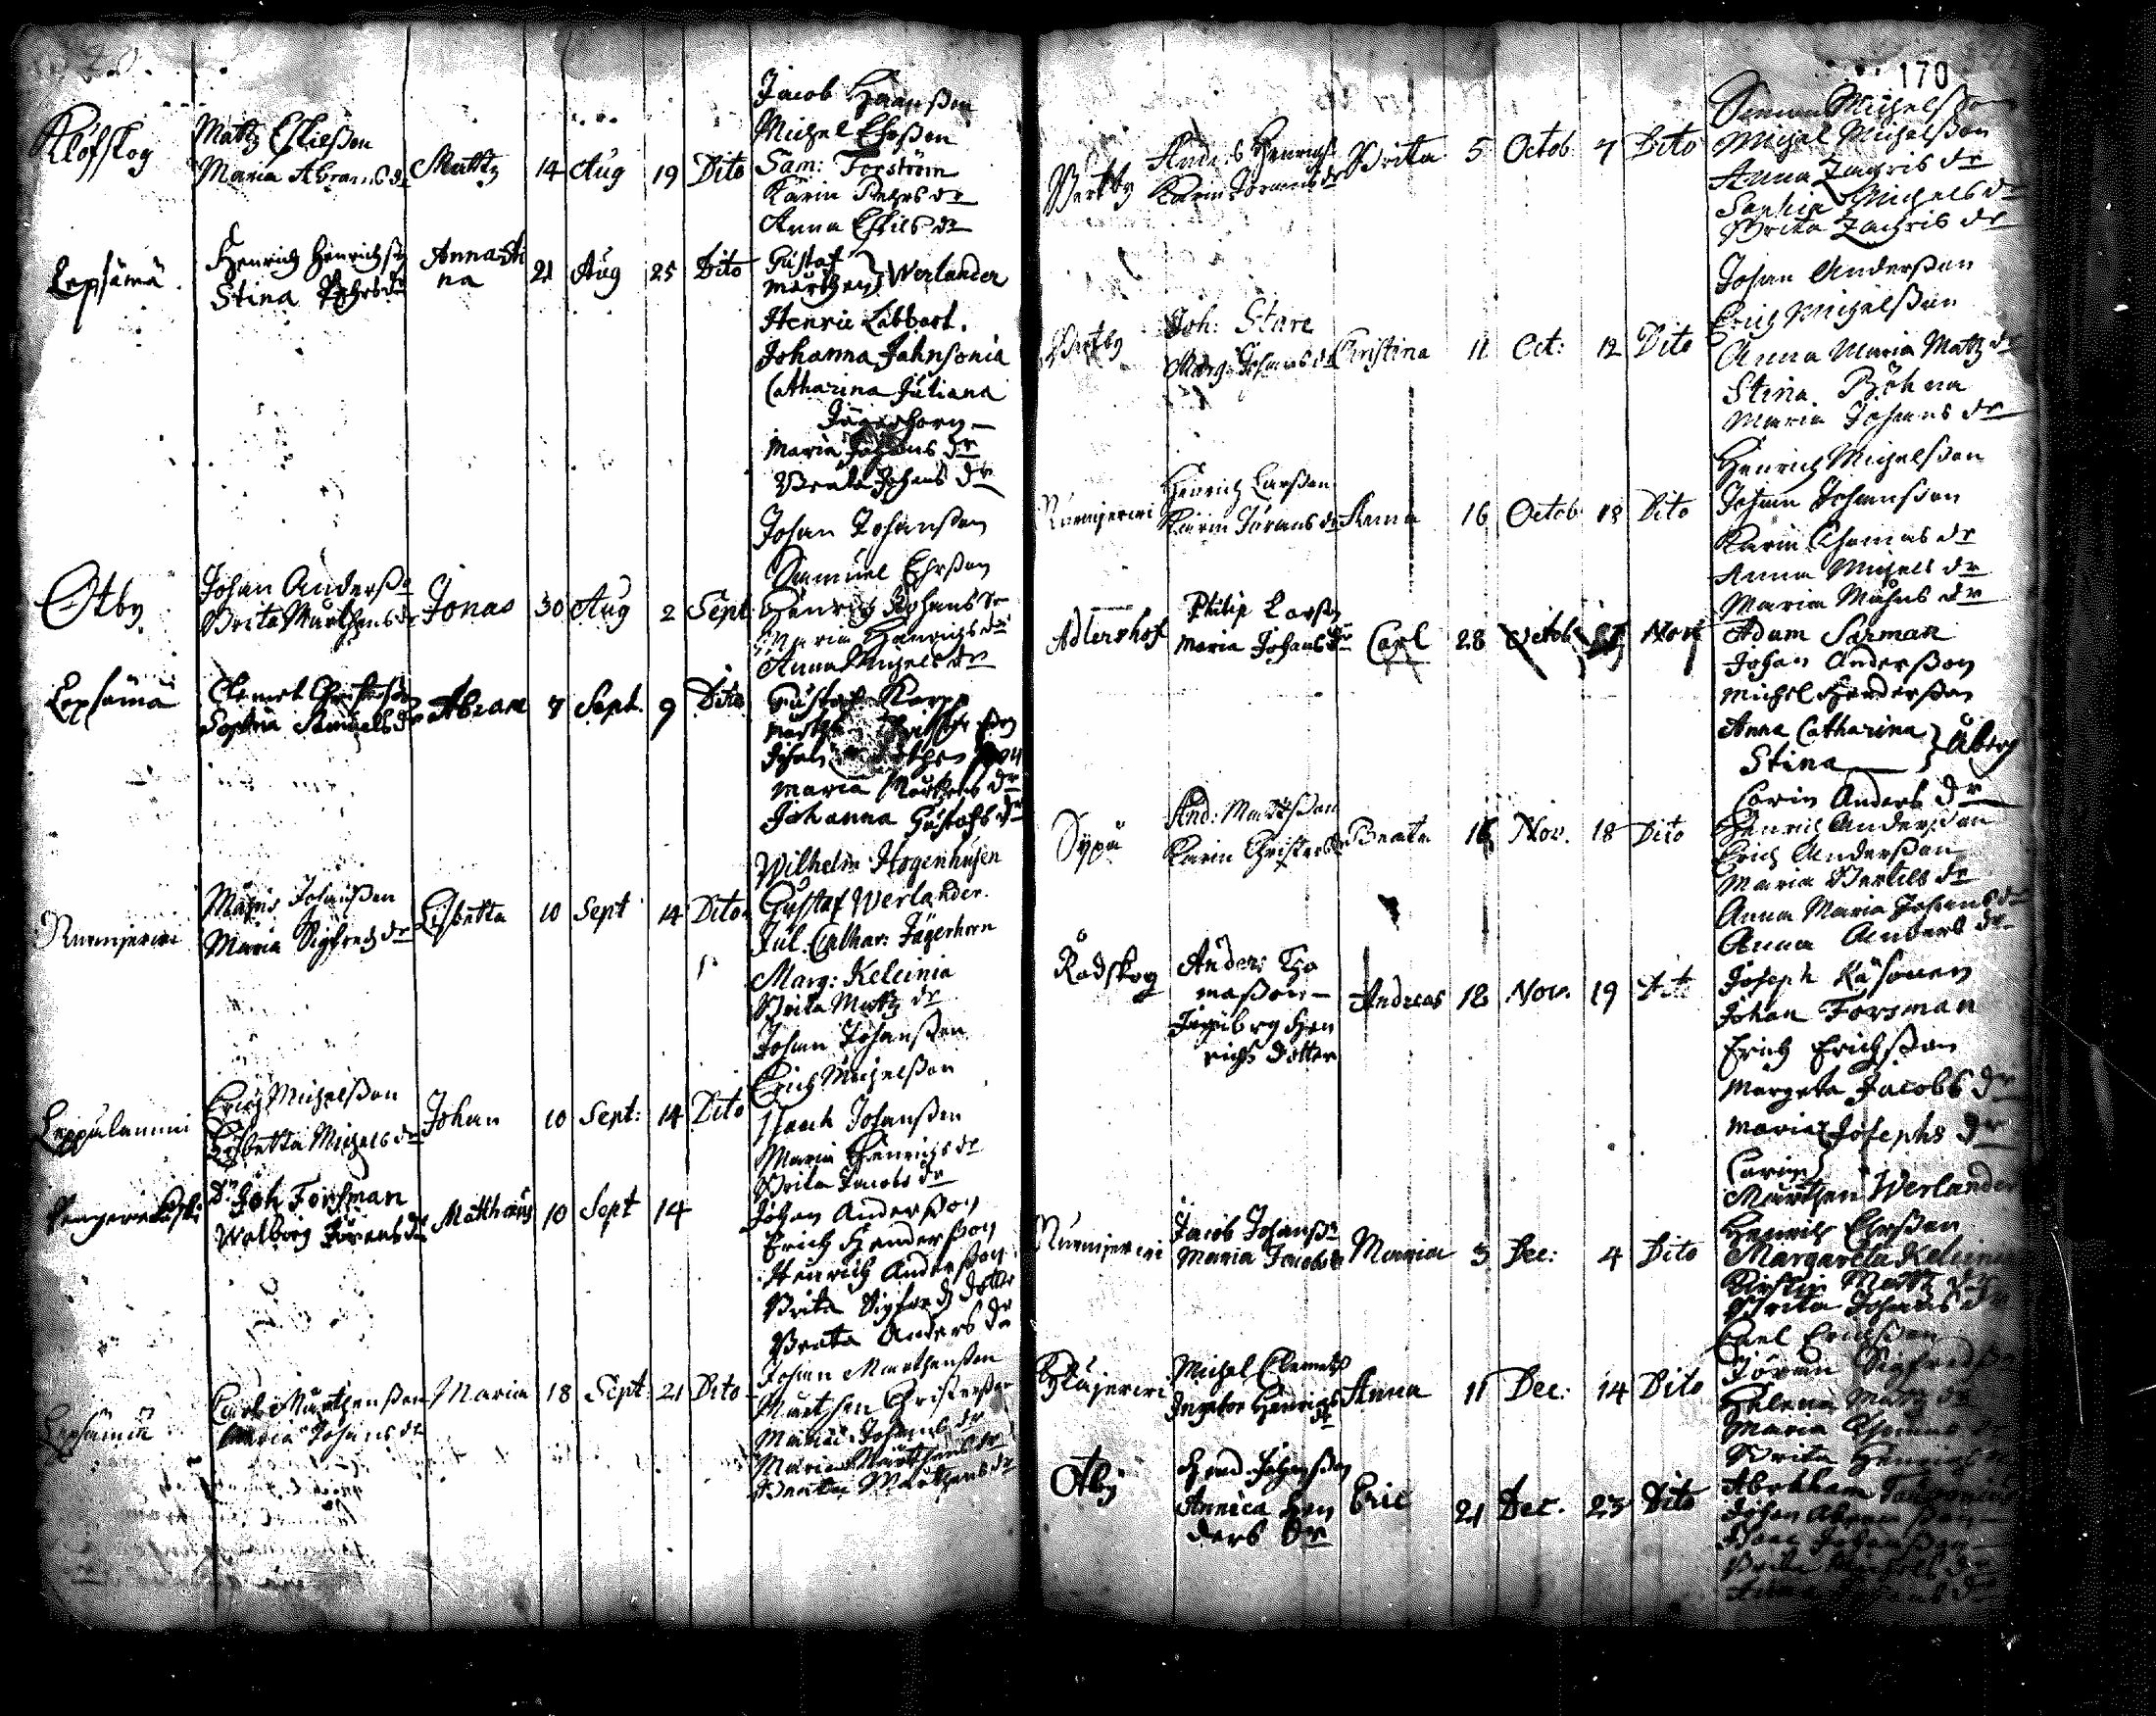 Klöfskog
Mattz Eskilsson
Maria Abrams dr
Mattz 14 Aug 19 Dito
Jacob Hansson
Michel Ehrsson
Sam: Forström
Karin Pehrs dr
Anna Eskils dr
Lepsämä
Henrich Henrichss
Stina Pehrs dr
Anna Sti
na
21 Aug 25 Dito
Gustaf
Mårthen } Werlander
Henric Labbart.
Johanna Jahnsonia
Catharina Juliana
Jägerhorn
Maria Johans dr
Beata Johans dr
Johan Johansson
Otby
Johan Anderss
Brita Mårthens dr
Jonas 30 Aug 2 Sept
Samuel Ehrsson
Henrich Johanss
Maria Henrichs dr
Anna Michels dr
Lepsämä
Clemet Christerss
Sophia Samuels dr
Abram 7 Sept. 9 Dito
Gustaf
Johan
Maria Mårthens dr
Johanna Gustafs dr
Nurmijerwi
Matts Johansson
Maria Sigfredz dr
Lisbetta 10 Sept 14 Dito
Wilhelm Hogenhusen
Gustaf Werlander
Jul. Cathar: Jägerhorn
Marg: Keleinia
Brita Mattz dr
Johan Johansson
Leppälammi
Erich Michelsson
Lisbetta Michels dr
Johan 10 Sept: 14 Dito
Erich Michelsson
Isaach Johansson
Maria Henrichs dr
Brita Jacobs dr
Joh Forsman
Walborg Jörens dr
Matthæus 10 Sept 14
Johan Andersson
Erich Hendersson
Henrich Andersson
Brita Sigfredz dotter
Beata Anders dr
Lepsämä
Carl Mårthensson
Maria Johans dr
Maria 18 Sept: 21 Dito
Johan Mårthensson
Mårthen Christersson
Maria Johans dr
Maria Mårthens dr
Beata Mårthens dr
170
Anders Henrichs
Karin Jörans dr
Brita 5 Octob 7 Dito
Simon Michelsson
Michel Michelsson
Anna Zachris dr
Sophia Michels dr
Brita Zachris dr
Joh: Stare
Marg: Johans dr
Christina 11 Oct: 12 Dito
Johan Andersson
Erich Michelsson
Anna Maria Mattz dr
Stina
Maria Johans dr
Nurmijerwi
Henrich Larsson
Karin Jörans dr
Anna 16 Octob 18 Dito
Henrich Michelsson
Johan Johansson
Karin Thomas dr
Anna Michels dr
Maria Måhns dr
Adlershof
Philip Larsson
Maria Johans dr
Carl 28 Octob Nov
Adam Sarman
Johan Andersson
Michel Hendersson
Anna Catharina
Stina } Åberg
Carin Anders dr
Sypä
And: Mattsson
Karin Christers dr
Beata 16 Nov. 18 Dito
Henrich Andersson
Erich Andersson
Maria Bertils dr
Anna Maria Johans dr
Anna Anders dr
Rödskog
Anders Tho
masson
Ingeborg Hen
richs dotter
Andreas 18 Nov. 19 Dito
Joseph Käsonen
Johan Forsman
Erich Erichsson
Margeta Jacobs dr
Maria } Josephs dr
Carin
Nurmijerwi
Jacob Johanss
Maria Jacobs dr
Maria 3 Dec: 4 Dito
Mårthen Werlander
Henrich Ehrsson
Margareta Keleinia
Kirstin Mattz dr
Brita Johans dr
Michel Clemetss
Ingebor Henrichs
dr
Anna 11 Dec: 14 Dito
Carl Erichsson
Jöran Sigfredsson
Helena Mattz dr
Maria Thomas dr
Brita Henrichs
Otby
Hend. Johansson
Annica Hen
ders dr
Eric 21 Dec. 23 Dito
Abraham
Johan Abramsson
Isaac Johansson
Brita
Anna Johans dr